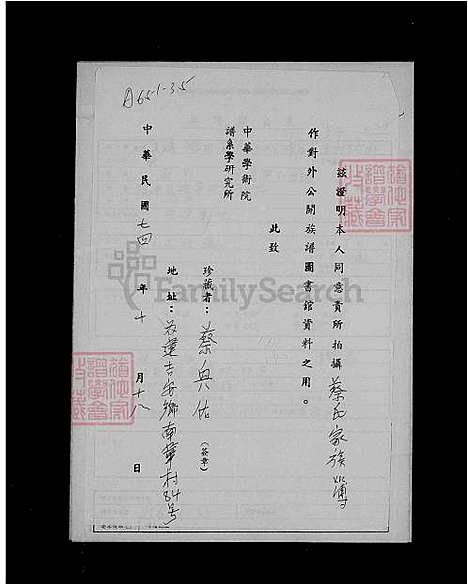 A65-1-35
茲證明本人同意貴所拍攝蔡氏家族簿
作對外公開族譜圖書館資料之用。
此致
中華學術院
譜系學研究所
珍藏者：蔡興佑（簽章）
地址：花蓮吉安鄉南華村84号
中華民國七四年十月十八日
FamilySearch